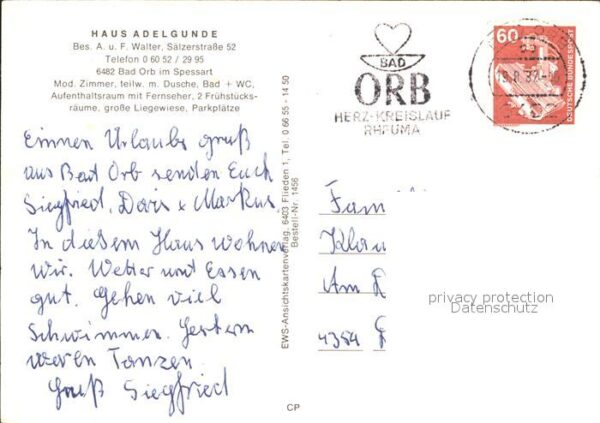 HAUS ADELGUNDE
Bes. A. u. F. Walter, Sälzerstraße 52
Telefon 0 60 52 / 29 95
6482 Bad Orb im Spessart
Mod. Zimmer, teilw. m. Dusche, Bad + WC,
Aufenthaltsraum mit Fernseher, 2 Frühstücks-
räume, große Liegewiese, Parkplätze
Einnen Urlaubs gruß
aus Bad Orb senden Euch
Siegfried, Doris x Markus
In diesem Haus wohnen
wir. Wetter und Essen
gut. Gehen viel
Schwimmen. Gestern
waren Tanzen
Gruß Siegfried
EWS-Ansichtskartenverlag, 6403 Flieden 1, Tel. 0 66 55 - 14 50
Bestell-Nr. 1456
BAD
ORB
HERZ-KREISLAUF
RHEUMA
60
DEUTSCHE BUNDESPOST
Fam
Klau
Am
4354
privacy protection
Datenschutz
CP